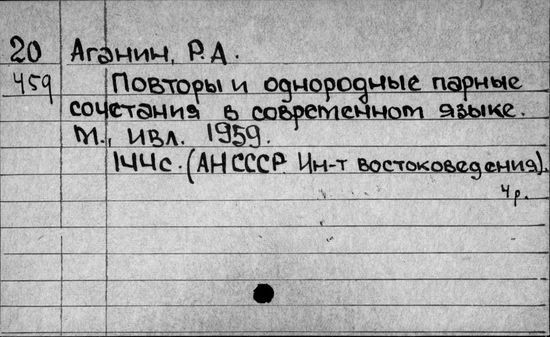 20 Аганин, Р.А.
459 Повторы и однородные парные
сочетания в современном языке.
М., ИВЛ. 1959.
144с. (АН СССР Ин-т востоковедения).
4р.